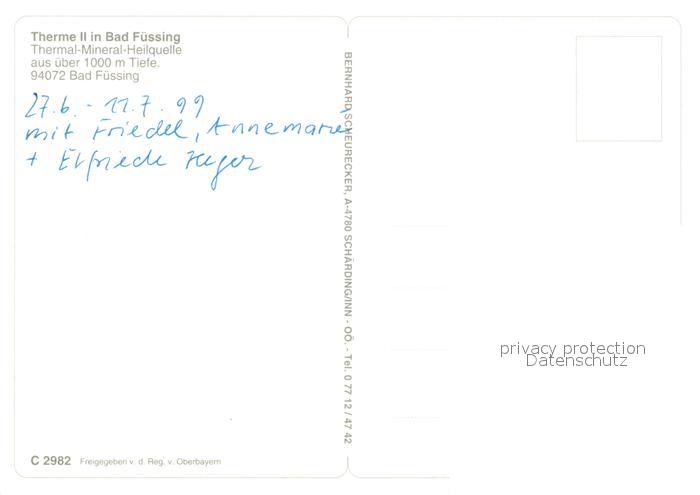 Therme II in Bad Füssing
Thermal-Mineral-Heilquelle
aus über 1000 m Tiefe.
94072 Bad Füssing
27.6. - 11.7.99
mit Friedel, Annemarie
+ Elfriede
BERNHARD SCHEURECKER, A-4780 SCHÄRDING/INN - OÖ. - Tel. 0 77 12 / 47 42
privacy protection
Datenschutz
C 2982 Freigegeben v. d. Reg. v. Oberbayern